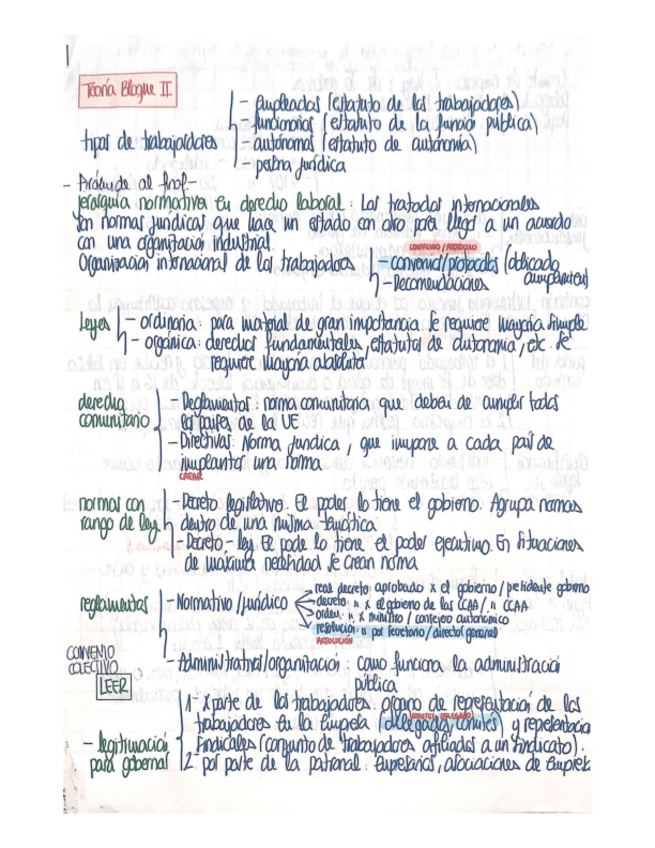 Teoría Bloque II
tipos de trabajadores
- empleados (estatuto de los trabajadores)
- funcionarios (estatuto de la función pública)
- autónomos (estatuto de autonomía)
- persona jurídica
- al final -
jerarquía normativa en derecho laboral: Los tratados internacionales
son normas jurídicas que hace un estado con otro para llegar a un acuerdo
con una organización industrial.
CONVENIO / PROTOCOLO
Organización internacional de los trabajadores
- convenio/protocolos (obligado
cumplimiento)
- Recomendaciones
leyes
- ordinaria: para material de gran importancia se requiere mayoría simple
- orgánica: derechos fundamentales, estatutos de autonomía, etc. Se
requiere mayoría absoluta
derecho
comunitario
- Reglamentos: norma comunitaria que deben de cumplir todos
los países de la UE
- Directivas: Norma jurídica, que impone a cada país de
implantar una norma
CREAR
normas con
rango de ley
- Decreto legislativo. El poder lo tiene el gobierno. Agrupa normas
dentro de una misma temática
- Decreto-ley El pode lo tiene el poder ejecutivo. En situaciones
de máxima necesidad se crean norma
reglamentos
- Normativo/jurídico
real decreto: aprobado x el gobierno/presidente gobierno
decreto: " x el gobierno de las CCAA/ " CCAA
orden: " x ministro/consejero autonómico
resolución: " por secretario/director general
RESOLUCIÓN
- Administrativos/organización: como funciona la administración
pública
CONVENIO
COLECTIVO
LEER
- legitimación
para gobernar
1- x parte de los trabajadores: órgano de representación de los
trabajadores en la empresa (delegados/comités) y representación
sindicales (conjunto de trabajadores afiliados a un sindicato).
2. por parte de la patronal: empresarios, asociaciones de empresa